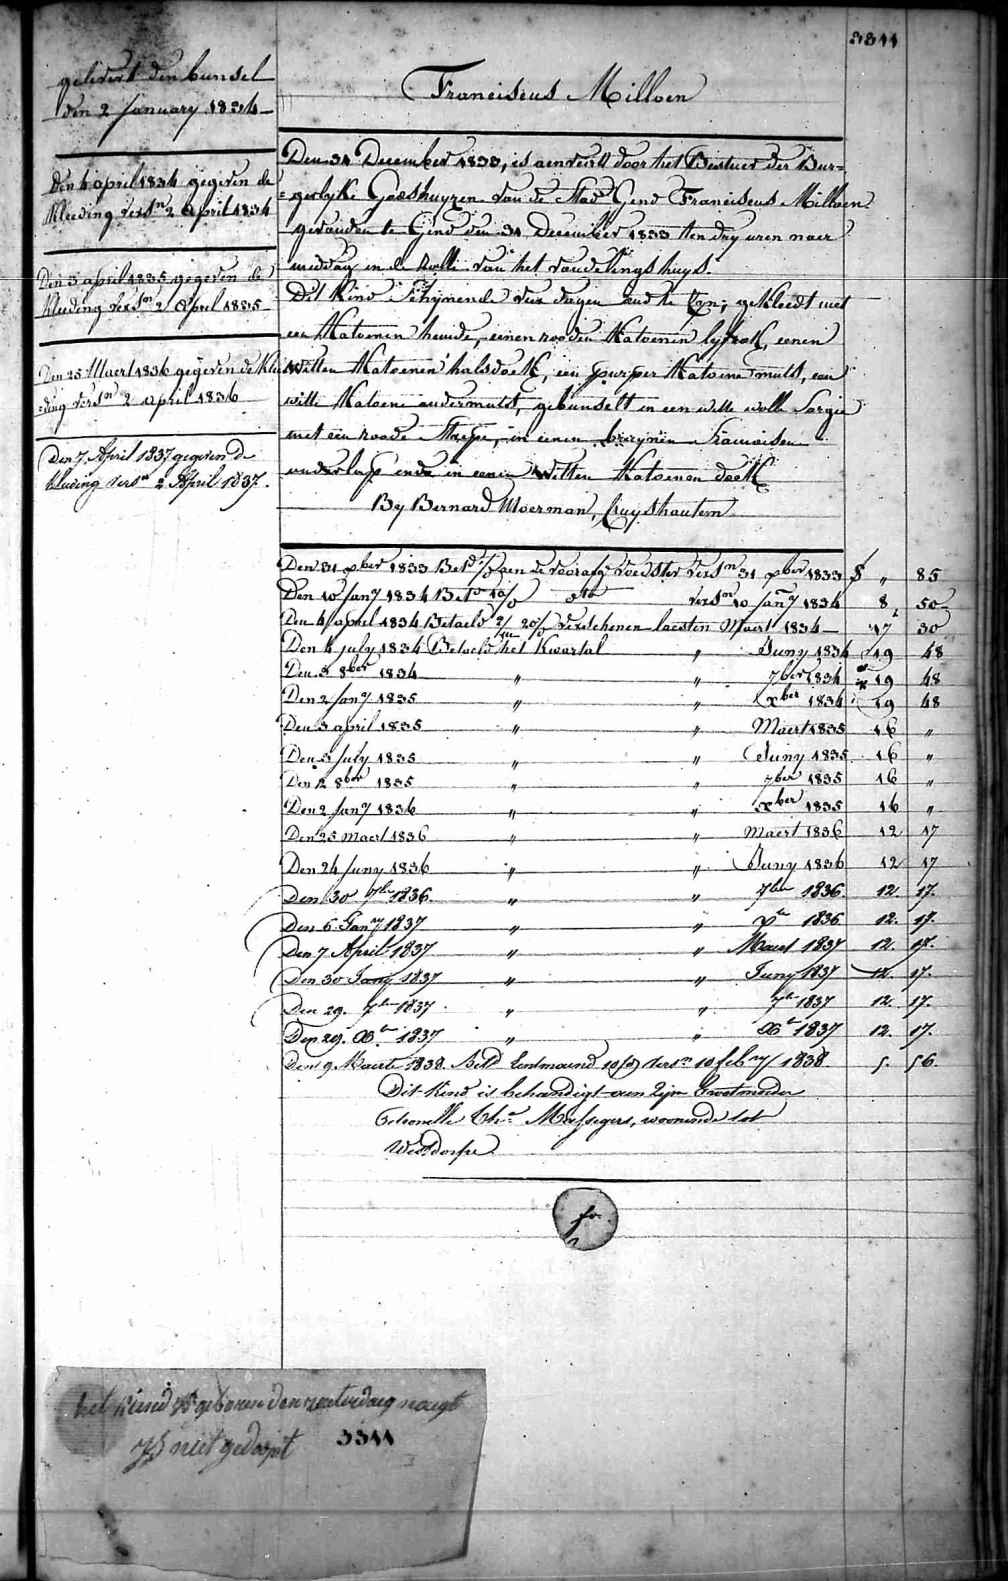 3311
Franciscus Milloen
gelevert den bunsel
den 2 January 1834
den 4 april 1834 gegeven de
kleeding versn 2 april 1834
Den 3 april 1835 gegeven de
kleeding versn 2 April 1835
Den 25 Maert 1836 gegeven de klee
ding versn 2 april 1836
Den 7 April 1837 gegeven de
kleeding versn 2 April 1837.
Den 31 December 1833, is aenveird door het Bestuer der Bur=
=gerlyke Godshuyzen van de Stad Gend Franciscus Milloen
gevonden te Gend den 31 December 1833 ten dry uren naer
middag in de Rolle van het vondelingshuys.
Dit Kind schynende vier dagen oud te zyn; gekleedt met
een Katoenen hemde, eenen rooden Katoenen lyfrok, eenen
Witten Katoenen halsdoek, een purper Katoene muts, een
witte Katoene ondermuts, gebunselt in een witte wolle Sargie
met een roode Streepe, in eenen bruynen
ende in eenen Witten Katoenen doek
By Bernard Moerman, Cruyshautem
Den 31 xber 1833 Betd aen de voorafge voedster versn 31 xber 1833 $ „ 85
Den 10 Jany 1834 Betd dto versn 10 Jany 1834 8 50
Den 4 april 1834 Betaeld verschenen laesten Maert 1834 17 30
Den 4 july 1834 Betaeld het Kwartal „ Juny 1834 19 48
Den 3 8ber 1834 „ „ 7ber 1834 19 48
Den 2 Jany 1835 „ „ xber 1834 19 48
Den 3 april 1835 „ „ Maert 1835 16 „
Den 3 july 1835 „ „ Juny 1835 16 „
Den 2 8ber 1835 „ „ 7ber 1835 16 „
Den 2 Jany 1836 „ „ xber 1835 16 „
Den 25 maert 1836 „ „ Maert 1836 12 17
Den 24 Juny 1836 „ „ Juny 1836 12 17
Den 30 7ber 1836. „ „ 7ber 1836. 12. 17.
Den 6 Jany 1837 „ „ xr 1836 12. 17.
Den 7 April 1837 „ „ Maert 1837 12. 17.
Den 30 Juny 1837 „ „ Juny 1837 12. 17.
Den 29. 7br 1837. „ „ 7br 1837 12. 17.
Den 29. Xbr 1837 „ „ Xbr 1837 12. 17.
Den 9 Maerte 1838. Betd versn 10 feby 1838. 5. 56.
Dit Kind is behandigt aen zijn Grootmoeder
Petronelle Massegers, woonende tot
Westdorpe
fo
het kind is geboren den zaterdag nacgt
ys niet gedoopt
3311